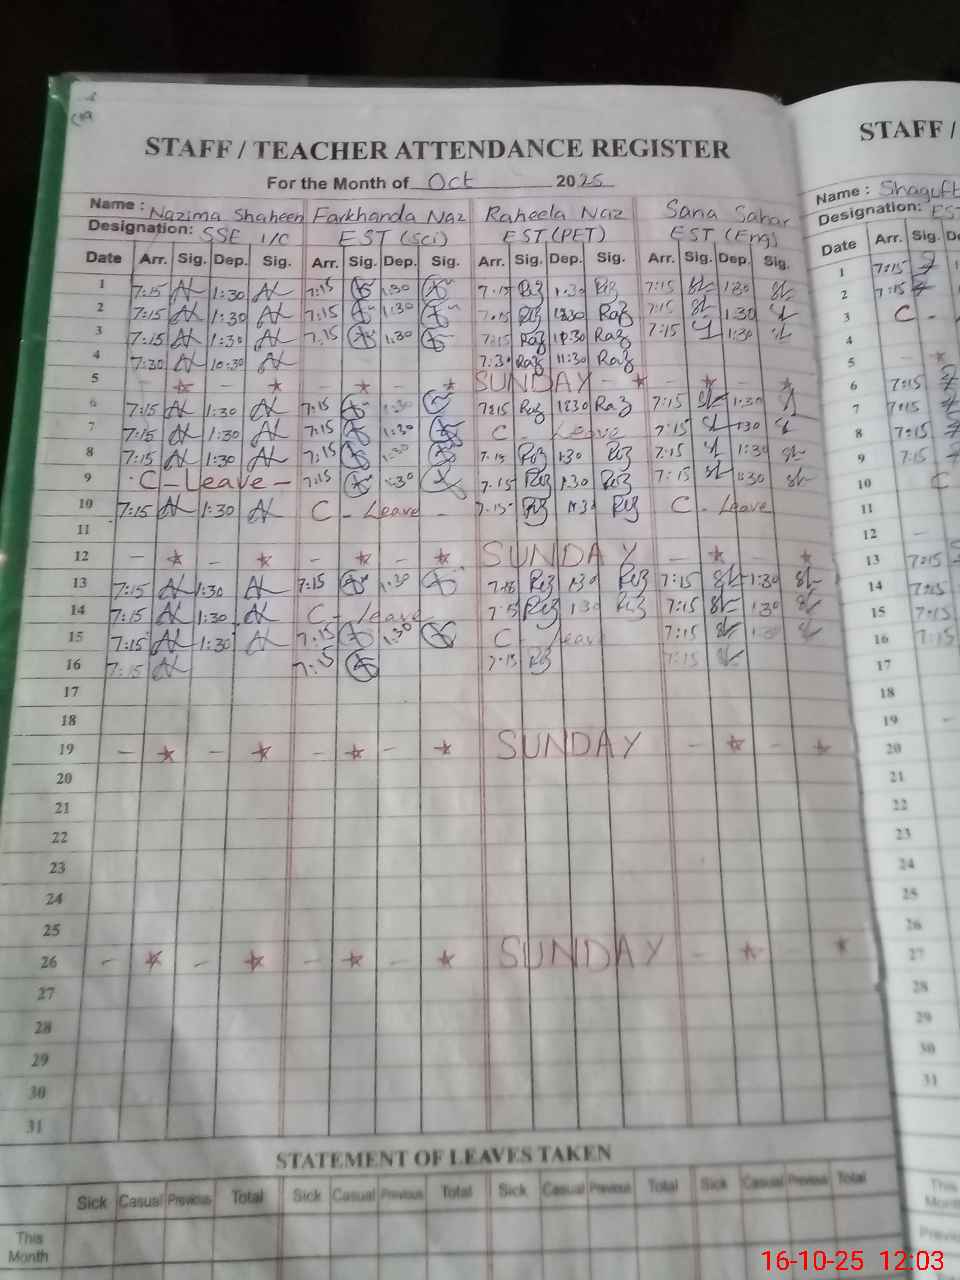 STAFF / TEACHER ATTENDANCE REGISTER
For the Month of Oct 2025
Name : Nazima Shaheen Farkhanda Naz Raheela Naz Sana Sahar
Designation: SSE I/C EST (Sci) EST (PET) EST (Eng)
Date Arr. Sig. Dep. Sig. Arr. Sig. Dep. Sig. Arr. Sig. Dep. Sig. Arr. Sig. Dep. Sig.
1 7:15 1:30 7:15 1:30 7:15 1:30 7:15 1:30
2 7:15 1:30 7:15 1:30 7:15 7:15 1:30
3 7:15 1:30 7:15 1:30 7:15 7:15 1:30
4 7:30 10:30 7:30 11:30
5 SUNDAY
6 7:15 1:30 7:15 1:30 7:15 7:15 1:30
7 7:15 1:30 7:15 1:30 C - Leave 7:15 1:30
8 7:15 1:30 7:15 1:30 7:15 1:30 7:15 1:30
9 C - Leave - 7:15 1:30 7:15 1:30 7:15 1:30
10 7:15 1:30 C - Leave - 7:15 C - Leave
11
12 SUNDAY
13 7:15 1:30 7:15 1:30 1:30 7:15 1:30
14 7:15 1:30 C - leave 1:30 7:15 1:30
15 7:15 1:30 7:15 1:30 C - Leave 7:15 1:30
16 7:15 7:15 7:15 7:15
17
18
19 SUNDAY
20
21
22
23
24
25
26 SUNDAY
27
28
29
30
31
STATEMENT OF LEAVES TAKEN
Sick Casual Previous Total Sick Casual Previous Total Sick Casual Previous Total Sick Casual Previous Total
This Month
STAFF /
Name : Shaguft
Designation: EST
Date Arr. Sig. De
1 7:15
2 7:15
3 C -
4
5
6 7:15
7 7:15
8 7:15
9 7:15
10 C
11
12
13 7:15
14 7:15
15 7:15
16 7:15
17
18
19
20
21
22
23
24
25
26
27
28
29
30
31
This Month
Previous
16-10-25 12:03